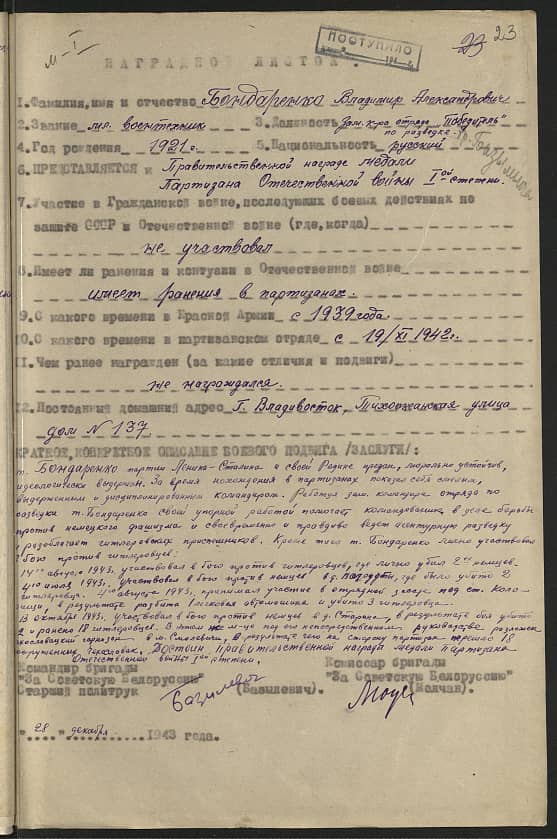 м-I
ПОСТУПИЛО
23 23
НАГРАДНОЙ ЛИСТОК.
1. Фамилия, имя и отчество Бондаренко Владимир Александрович
2. Звание мл. воентехник 3. Должность Зам. к-ра отряда "Победитель"
по разведке.
4. Год рождения 1921 г. 5. Национальность русский
6. ПРЕДСТАВЛЯЕТСЯ к Правительственной награде медали
Партизана Отечественной войны I ой степени.
7. Участие в Гражданской войне, последующих боевых действиях по
защите СССР и Отечественной войне (где, когда)
не участвовал
8. Имеет ли ранения и контузии в Отечественной войне
имеет ранения в партизанах.
9. С какого времени в Красной Армии с 1939 года
10. С какого времени в партизанском отряде с 19/XI 1942 г.
11. Чем ранее награжден (за какие отличия и подвиги)
не награждался.
12. Постоянный домашний адрес Г. Владивосток, Тихоокеанская улица
дом N 137
КРАТКОЕ, КОНКРЕТНОЕ ОПИСАНИЕ БОЕВОГО ПОДВИГА /ЗАСЛУГИ/:
т. Бондаренко партии Ленина-Сталина и своей Родине предан, морально устойчив,
идеологически выдержан. За время нахождения в партизанах показал себя смелым,
выдержанным и дисциплинированным командиром. Работая зам. командира отряда по
разведке т. Бондаренко своей упорной работой помогает командованию в деле борьбы
против немецкого фашизма и своевременно и правдиво ведет агентурную разведку
и разоблачает гитлеровских приспешников. Кроме того т. Бондаренко лично участвовал
в бою против гитлеровцев:
14 го августа 1943 г. участвовал в бою против гитлеровцев, где лично убил 2 немцев.
4 го июля 1943 г. участвовал в бою против немцев в д. где было убито 2
гитлеровца. августа 1943 г. принимал участие в отрядной засаде под ст.
в результате разбита 1 легковая автомашина и убито 3 гитлеровца.
13 октября 1943 г. участвовал в бою против немцев в д. в результате боя убито
2 и ранено 18 гитлеровцев. В этом же м-це под его непосредственным руководством разложен
гарнизон в м. Смолевичи, в результате чего на сторону партизан перешло 18
вооруженных Достоин правительственной награды медали Партизана
Отечественной войны I ой степени.
Командир бригады Комиссар бригады
"За Советскую Белоруссию" "За Советскую Белоруссию"
Старший политрук (Базылевич). (Молчан).
"28" декабря 1943 года.